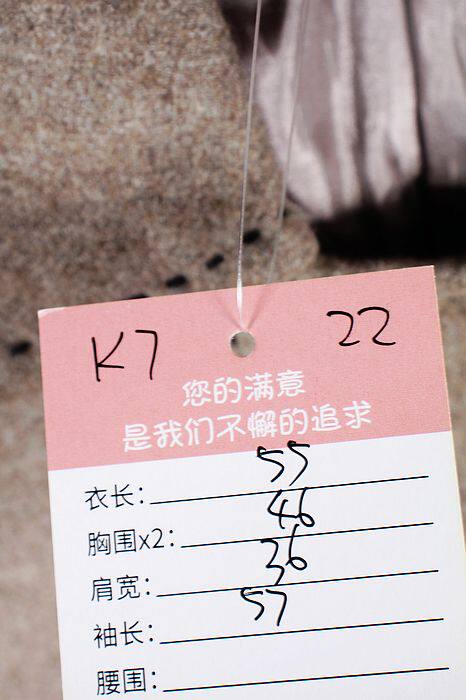 K7 22
您的满意
是我们不懈的追求
衣长: 55
胸围x2: 46
肩宽: 36
袖长: 57
腰围: